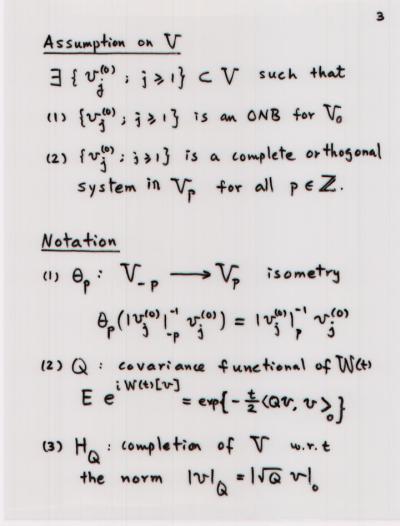 3
Assumption on V
∃ { v_j^(0) ; j ≥ 1 } ⊂ V such that
(1) { v_j^(0) ; j ≥ 1 } is an ONB for V_0
(2) { v_j^(0) ; j ≥ 1 } is a complete orthogonal
system in V_p for all p ∈ ℤ.
Notation
(1) θ_p : V_{-p} → V_p isometry
θ_p ( |v_j^(0)|_{-p}^{-1} v_j^(0) ) = |v_j^(0)|_p^{-1} v_j^(0)
(2) Q : covariance functional of W(t)
E e^{i W(t)[v]} = exp{ -t/2 <Qv, v>_0 }
(3) H_Q : completion of V w.r.t
the norm |v|_Q = |√Q v|_0